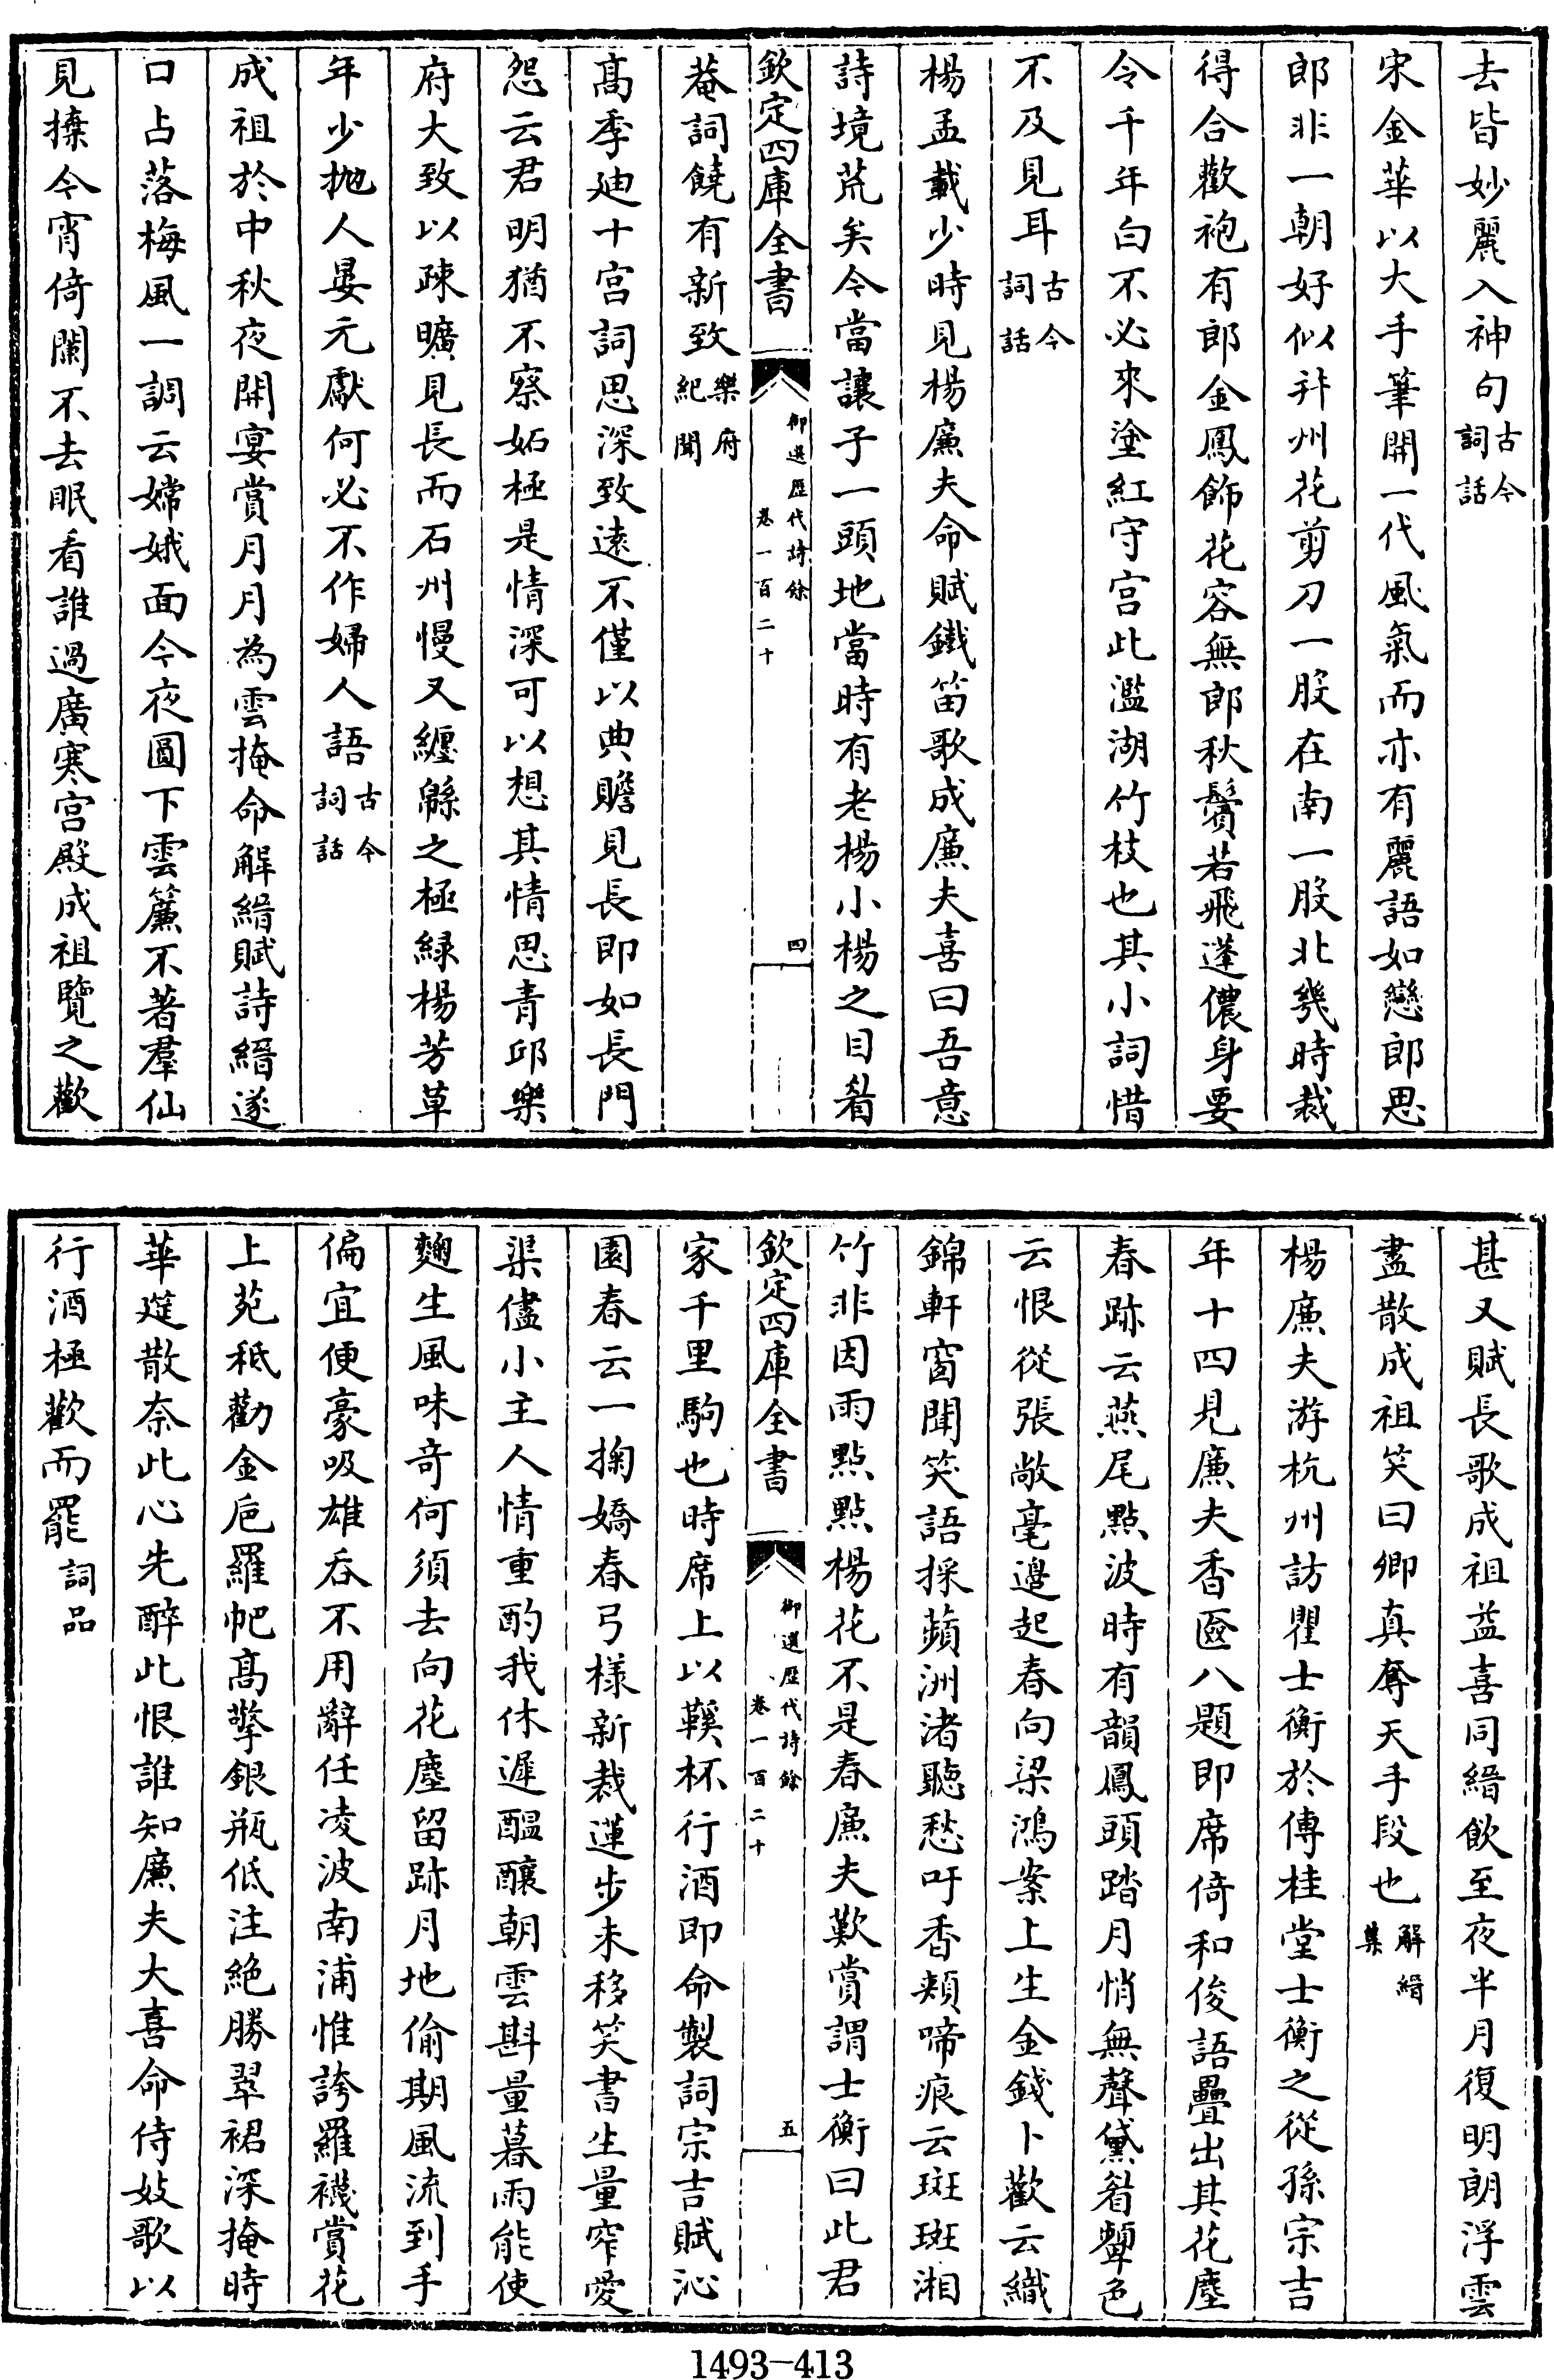 去皆妙麗入神句古今詞話
宋金華以大手筆開一代風氣而亦有麗語如戀郎思
郎非一朝好似并州花剪刀一股在南一股北幾時裁
得合歡袍有郎金鳳飾花容無郎秋鬢若飛蓬儂身要
令千年白不必來塗紅守宫此濫湖竹枝也其小詞惜
不及見耳古今詞話
楊孟載少時見楊廉夫命賦鐵笛歌成廉夫喜曰吾意
詩境荒矣今當讓子一頭地當時有老楊小楊之目眉
欽定四庫全書
御選歴代詩餘
卷一百二十
四
菴詞饒有新致樂府紀聞
髙季廸十宫詞思深致遠不僅以典贍見長即如長門
怨云君明猶不察妬極是情深可以想其情思青邱樂
府大致以疎曠見長而石州慢又纏緜之極緑楊芳草
年少抛人晏元獻何必不作婦人語古今詞話
成祖於中秋夜開宴賞月月為雲掩命解縉賦詩縉遂
口占落梅風一調云嫦娥面今夜圓下雲簾不著羣仙
見拚今宵倚闌不去眠看誰過廣寒宫殿成祖覽之歡
甚又賦長歌成祖益喜同縉飲至夜半月復明朗浮雲
盡散成祖笑曰卿真奪天手段也解縉集
楊廉夫游杭州訪瞿士衡於傳桂堂士衡之從孫宗吉
年十四見廉夫香匳八題即席倚和俊語疊出其花塵
春跡云燕尾點波時有韻鳳頭踏月悄無聲黛眉顰色
云恨從張敞毫邉起春向梁鴻案上生金錢卜歡云織
錦軒窗聞笑語採蘋洲渚聽愁吁香頰啼痕云斑斑湘
竹非因雨點點楊花不是春廉夫歎賞謂士衡曰此君
欽定四庫全書
御選歴代詩餘
卷一百二十
五
家千里駒也時席上以鞵杯行酒即命製詞宗吉賦沁
園春云一掬嬌春弓様新裁蓮步未移笑書生量窄愛
渠儘小主人情重酌我休遲醖釀朝雲斟量暮雨能使
麴生風味竒何須去向花塵留跡月地偷期風流到手
偏宜便豪吸雄吞不用辭任凌波南浦惟誇羅襪賞花
上苑秪勸金巵羅帊髙擎銀瓶低注絶勝翠裙深掩時
華筵散奈此心先醉此恨誰知廉夫大喜命侍妓歌以
行酒極歡而罷詞品
1493-413